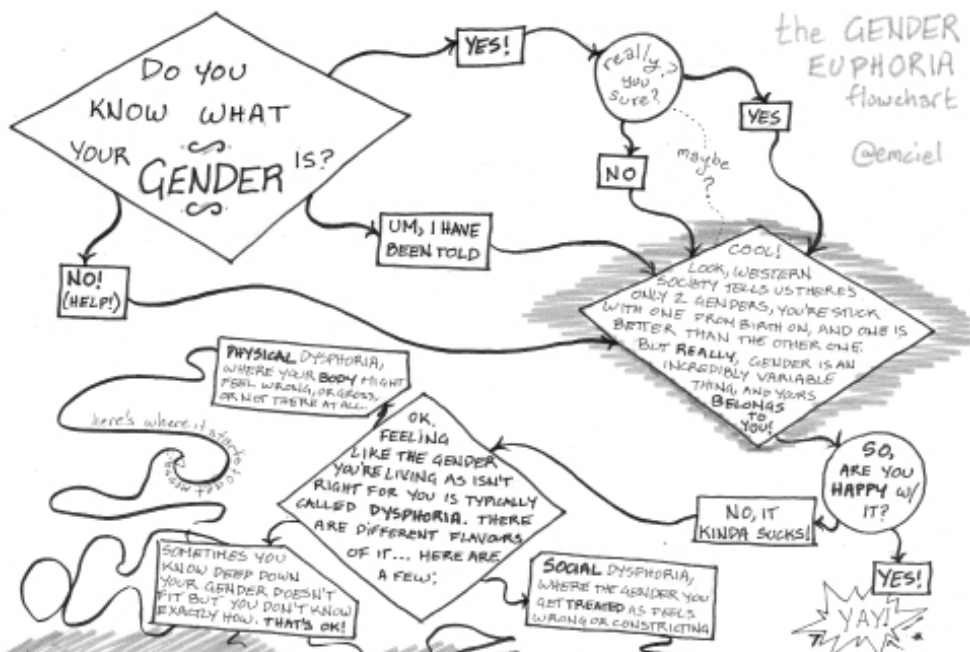 the GENDER
EUPHORIA
flowchart
@emciel
DO YOU
KNOW WHAT
YOUR GENDER IS?
YES!
really?
you
sure?
YES
maybe
?
NO
UM, I HAVE
BEEN TOLD
NO!
(HELP!)
COOL!
LOOK, WESTERN
SOCIETY TELLS US THERE'S
ONLY 2 GENDERS, YOU'RE STUCK
WITH ONE FROM BIRTH ON, AND ONE IS
BETTER THAN THE OTHER ONE.
BUT REALLY, GENDER IS AN
INCREDIBLY VARIABLE
THING, AND YOURS
BELONGS
TO
YOU!
SO,
ARE YOU
HAPPY W/
IT?
NO, IT
KINDA SUCKS!
YES!
YAY!
OK.
FEELING
LIKE THE GENDER
YOU'RE LIVING AS ISN'T
RIGHT FOR YOU IS TYPICALLY
CALLED DYSPHORIA. THERE
ARE DIFFERENT FLAVOURS
OF IT... HERE ARE
A FEW:
PHYSICAL DYSPHORIA,
WHERE YOUR BODY MIGHT
FEEL WRONG, OR GROSS,
OR NOT THERE AT ALL.
here's where it starts to get messy
SOMETIMES YOU
KNOW DEEP DOWN
YOUR GENDER DOESN'T
FIT BUT YOU DON'T KNOW
EXACTLY HOW. THAT'S OK!
SOCIAL DYSPHORIA,
WHERE THE GENDER YOU
GET TREATED AS FEELS
WRONG OR CONSTRICTING